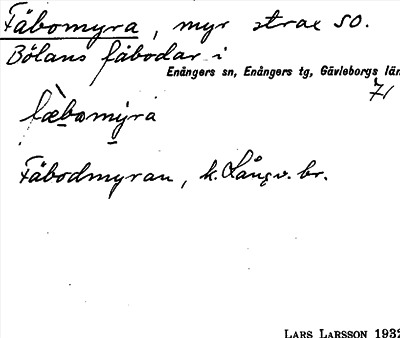 Fäbomyra, myr strax SO.
Bölans fäbodar i
Enångers sn, Enångers tg, Gävleborgs län
71
fæ̀bomýra
Fäbodmyran, k. Långv. br.
LARS LARSSON 1932